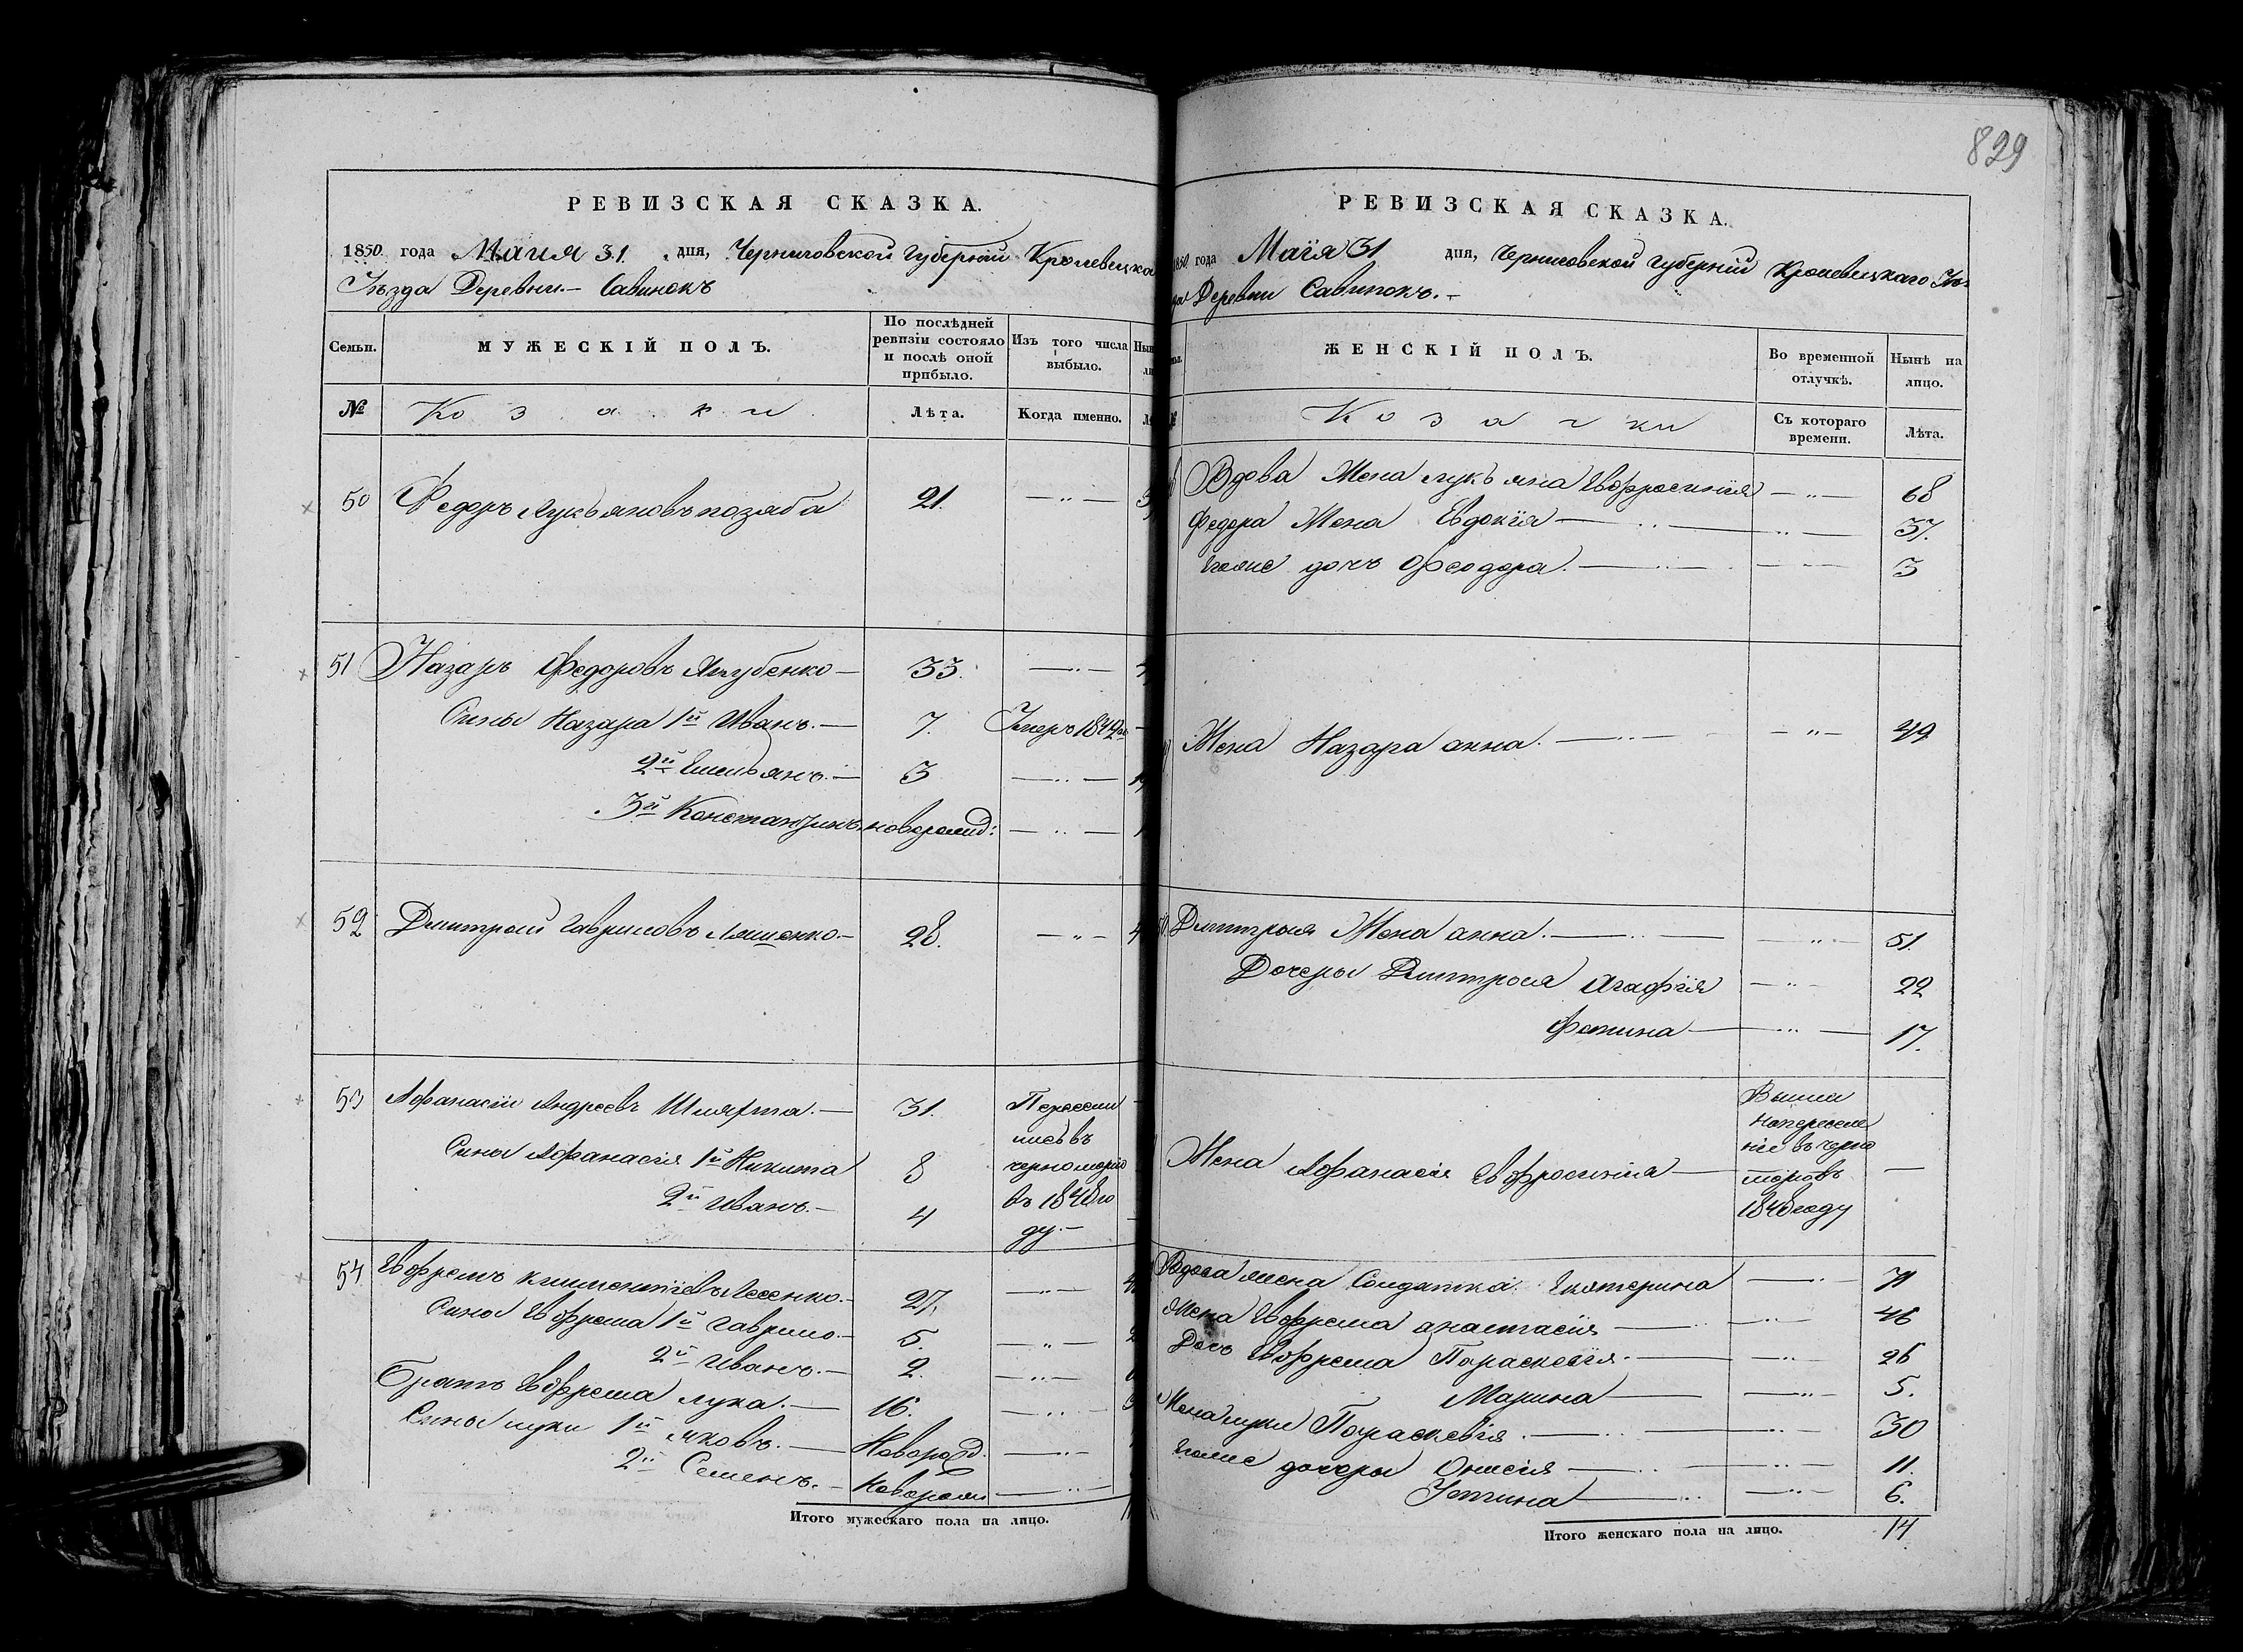 829
РЕВИЗСКАЯ СКАЗКА.
1850 года Маия 31 дня, Черниговской Губернии Кролевецка
Уѣзда Деревни.— Савинокъ
Семьи.
МУЖЕСКІЙ ПОЛЪ.
По послѣдней ревизіи состояло и послѣ оной прибыло.
Изъ того числа выбыло.
№
Козаки
Лѣта.
Когда именно.
50 Федоръ Лукьяновъ позяба 21. —"—
51 Назаръ Федоровъ Якубенко — 33. —"—
Сыны Назара 1й Иванъ.— 7. Умеръ 1842го
2й Емельянъ.— 3 —"—
3й Константинъ новорожд: —"—
52 Дмитрий Гавриловъ Ляшенко.— 28. —"—
53 Афанасій Андреевъ Шляхта.— 31. Пересели
лись въ
Сины Афанасія 1й Никита 8 черноморію
2й Иванъ.— 4 въ 1848го
ду.—
54 Евфремъ Климентіевъ Лесенко.— 27. —"—
Сины Евфрема 1й Гаврило.— 5. —"—
2й Иванъ.— 2. —"—
Братъ Евфрема лука.— 16. —"—
Сины луки 1й яковъ.— Новорожд. —"—
2й Семенъ.— Новорож —"—
Итого мужескаго пола на лицо.
РЕВИЗСКАЯ СКАЗКА.
1850 года Маія 31 дня, Черниговской Губерніи Кролевецкаго Уѣз
да Деревни Савинокъ.—
ЖЕНСКІЙ ПОЛЪ.
Во временной отлучкѣ.
Нынѣ на лицо.
Козачки
Съ котораго времени.
Лѣта.
Вдова Жена лукьяна Евфросинія —"— 68
Федора Жена Евдокія — —"— 37.
Егоже дочь Феодора. — —"— 3
Жена Назара анна. — —"— 49
Дмитрыя Жена анна. — —"— 51.
Дочеры Дмитрыя Агафія —"— 22
Фотина — —"— 17.
Вышла
напереселе
ніе въ черно
Жена Афанасія Евфросинія —
моріювъ
1848 году
Вдова жена Солдатка Екатерина —"— 71
Жена Евфрема анастасія — —"— 46
Дочь Евфрема Параскевія.— —"— 26
Марина — —"— 5.
Жена луки Параскевія.— —"— 30
Егоже дочеры Онисія — —"— 11.
Устина — —"— 6.
Итого женскаго пола на лицо. 14